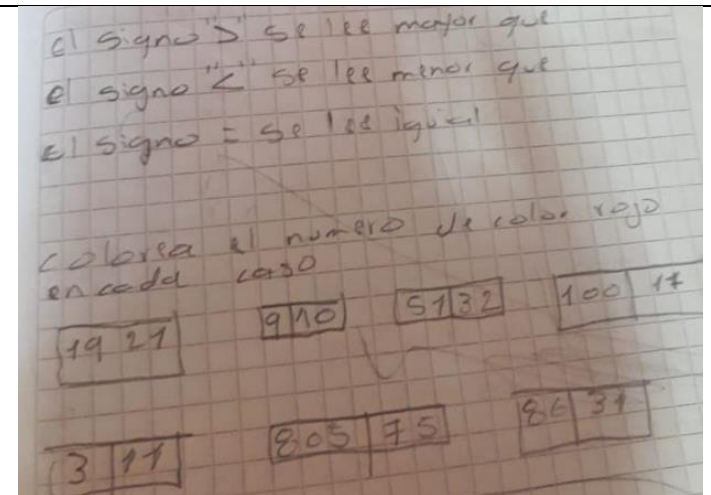 el signo ">" se lee mayor que
el signo "<" se lee menor que
el signo = se lee igual
colorea el numero de color rojo
en cada caso
19 21 9 10 51 32 100 17
3 11 805 75 86 31